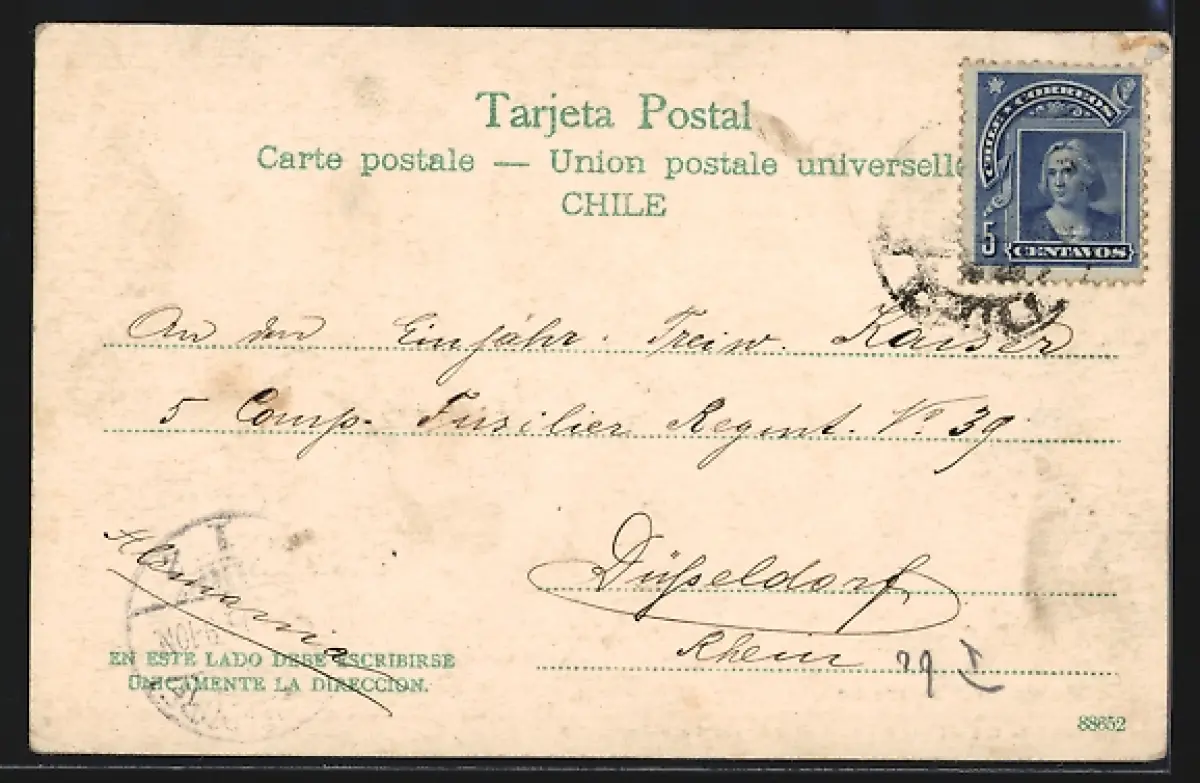 Tarjeta Postal
Carte postale — Union postale universelle
CHILE
CHILE CORREOS
5 CENTAVOS
An den Einjähr. Freiw. Kaiser
5 Comp. Füsilier Regmt. No 39
Düßeldorf
Rhein
Alemania
EN ESTE LADO DEBE ESCRIBIRSE
ÚNICAMENTE LA DIRECCION.
88652